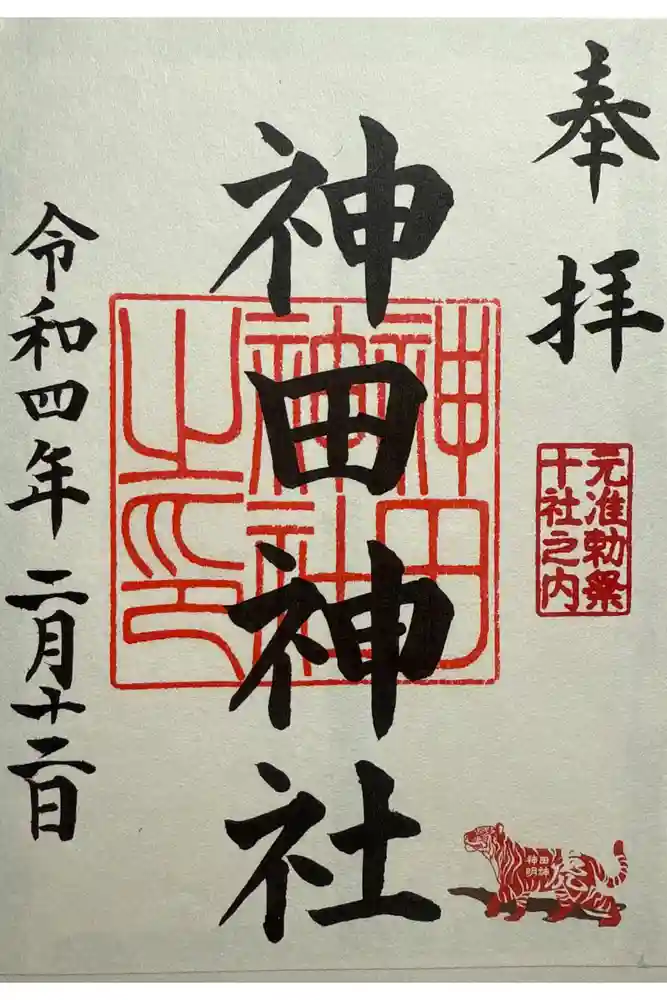 奉拝
元准勅祭
十社之内
神田神社
神田
神社
之印
令和四年二月十二日
神田
明神
虎